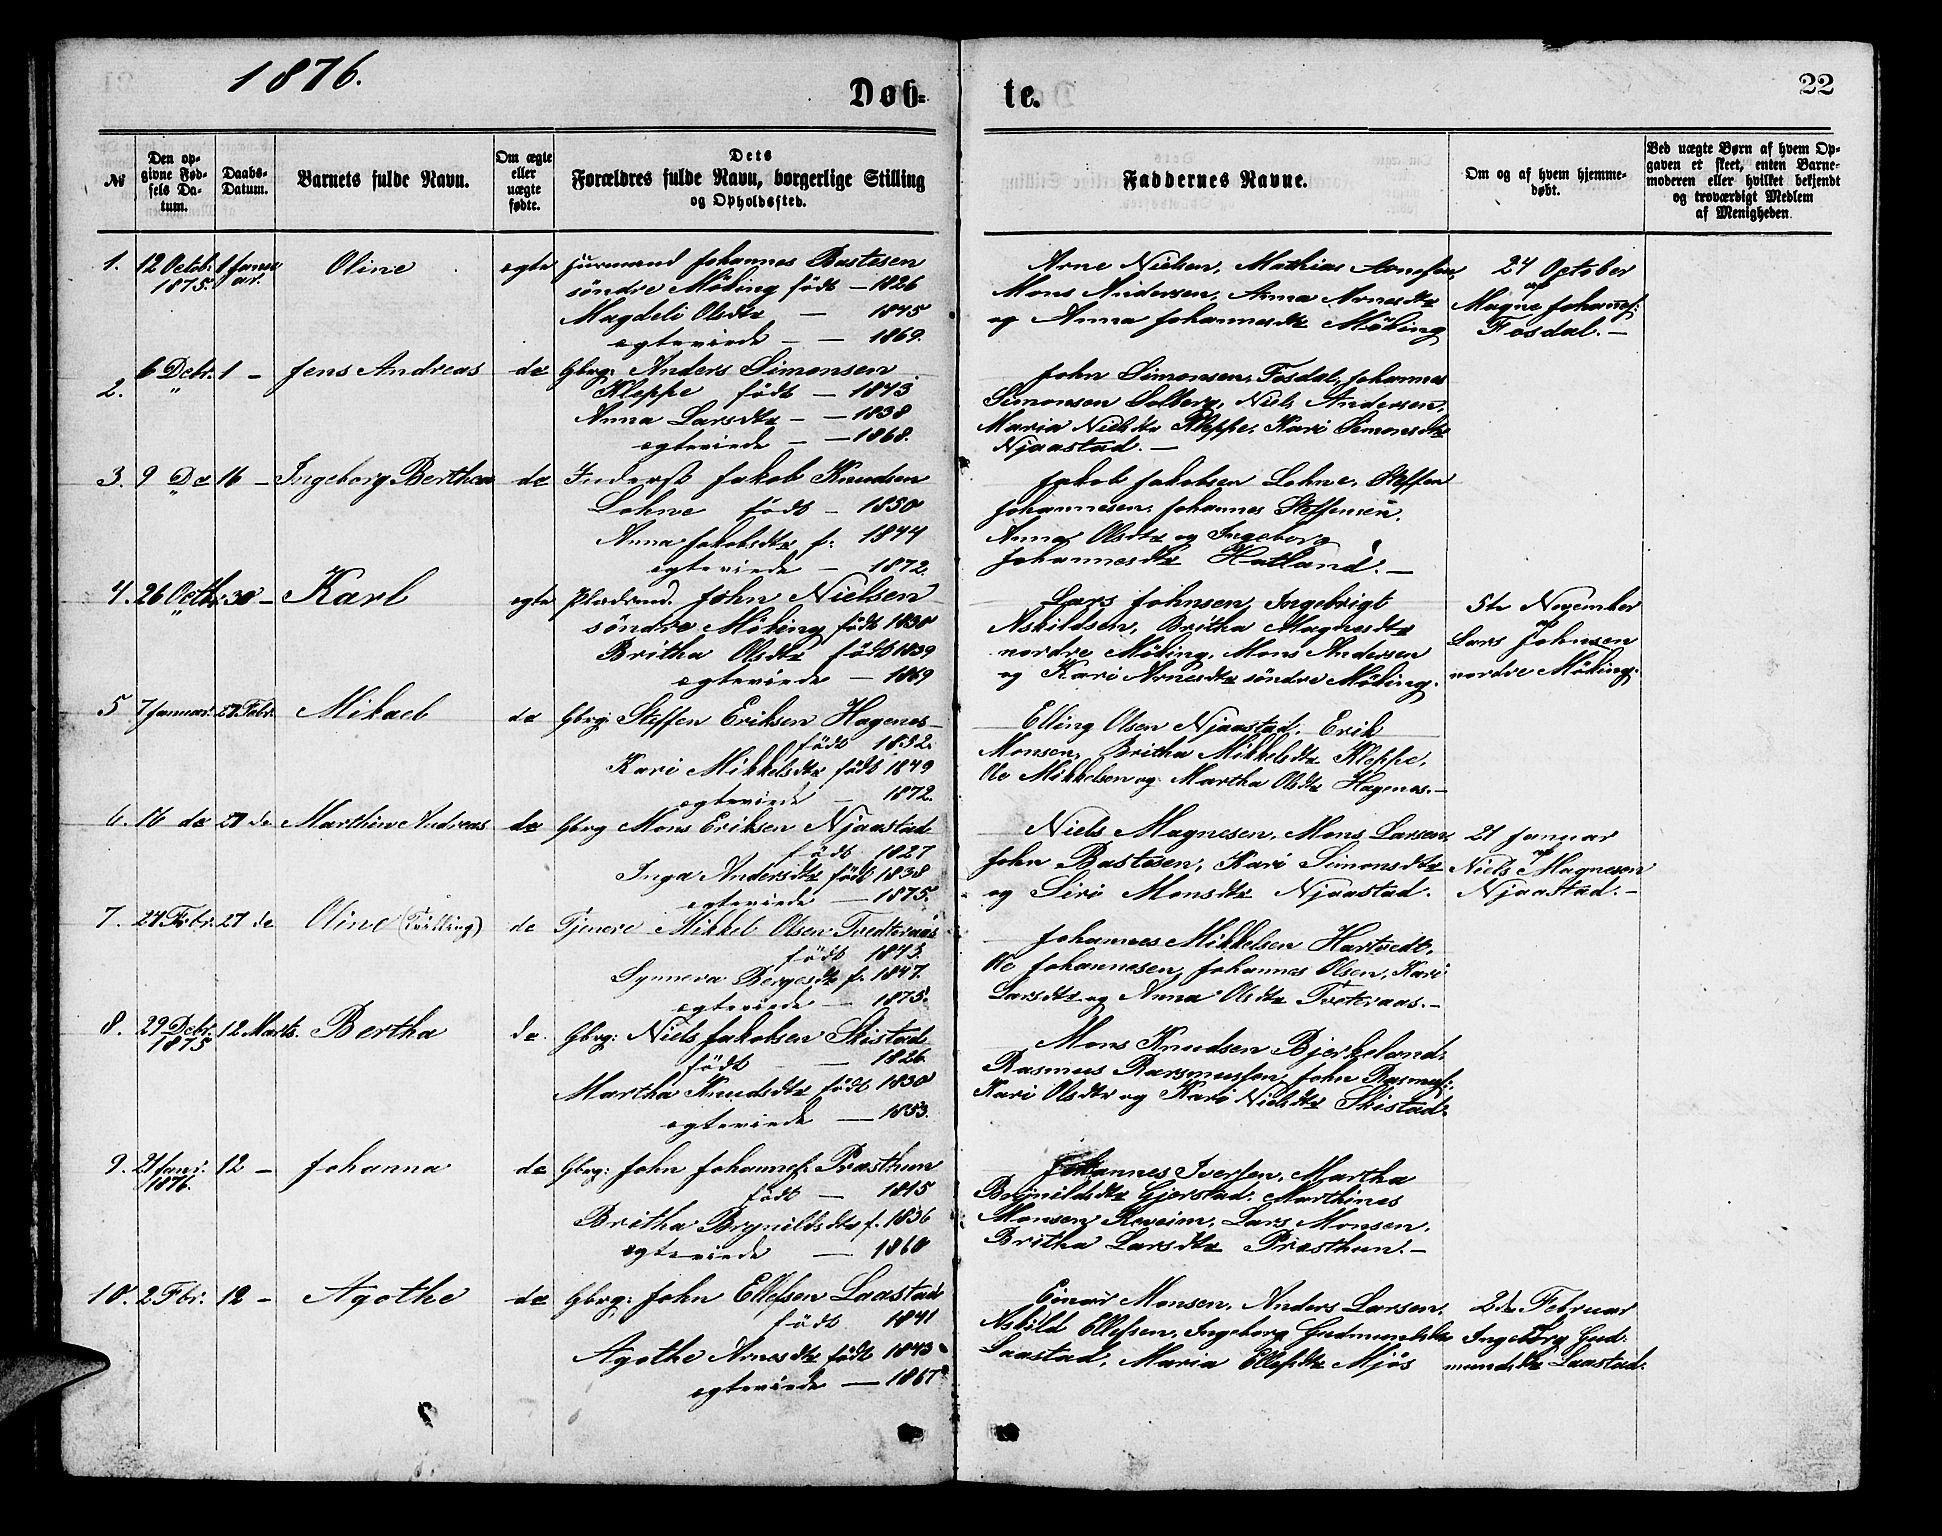 1876.
Døb=
te.
22
№
Den op-
givne Fød-
sels Da-
tum.
Daabs-
Datum.
Barnets fulde Navn.
Om ægte
eller
uægte
fødte.
Dets
Forældres fulde Navn, borgerlige Stilling
og Opholdssted.
Faddernes Navne.
Om og af hvem hjemme-
døbt.
Ved uægte Børn af hvem Op-
gaven er skeet, enten Barne-
moderen eller hvilket bekjendt
og troværdigt Medlem
af Menigheden.
1. 12 Octob: 1875. 1 Janu ar. Oline egte Huusmand Johannes Bastesen
söndre Möking födt — 1826
Magdeli Olsdtr — 1845
egteviede — — 1869.
Arne Nielsen, Mathias Arnesen,
Mons Andersen, Anna Arnesdtr
og Anna Johannesdtr Möking
24 October
af
Magne Johanes:
Fosdal. —
2. 6 Decbr. " 1 — Jens Andreas do Gbrg: Anders Simonsen
Kleppe födt — 1843
Anna Larsdtr — — 1838
egteviede — — 1868.
John Simonsen, Fosdal, Johannes
Simonsen Solberg, Niels Andersen,
Maria Nielsdtr Kleppe, Kari Simonsdtr
Njaastad. —
3. 9 Do " 16 — Ingeborg Berthea do Inderst Jakob Knudsen
Lohne födt — 1850
Anna Jakobsdtr f. 1844
egteviede — 1872.
Jakob Jakobsen Lohne, Steffen
Johannesen, Johannes Steffensen,
Anna Olsdtr og Ingeborg
Johannesdtr Hatland. —
4. 26 Octbr. " 30 — Karl egte Pladsmd. John Nielsen
söndre Möking födt 1830
Britha Olsdtr födt 1839
egteviede — 1869
Lars Johnsen, Ingebrigt
Askildsen, Britha Magnesdtr
nordre Möking, Mons Andersen
og Kari Arnesdtr söndre Möking.
5te November
af
Lars Johnsen
nordre Möking.
5 7 Januar. 27 Febr. Mikael do Gbrg: Steffen Eriksen Hagenes —
födt 1832.
Kari Mikkelsdtr födt 1849
egteviede — 1872.
Elling Olsen Njaastad, Erik
Monsen, Britha Mikkelsdtr Kleppe,
Ole Mikkelsen og Martha Olsdtr Hagenes. —
6. 16 do 27 do Marthin Andreas do Gbrg Mons Eriksen Njaastad
födt 1827
Inga Andersdtr födt 1838
egteviede — 1875.
Niels Magnesen, Mons Larsen,
John Bastesen, Kari Simonsdtr
og Siri Monsdtr Njaastad.
21 Januar
af
Niels Magnesen
Njaastad. —
7. 24 Febr. 27 do Oline (Tvilling) do Tjenere Mikkel Olsen Tvedteraas
födt 1843.
Synneva Bergesdtr f. 1847.
egteviede — 1875.
Johannes Mikkelsen Hartvedt,
Ole Johannesen, Johannes Olsen, Kari
Larsdtr og Anna Olsdtr Tveteraas. —
8. 29 Debr. 1875 12 Marts. Bertha do. Gbrg: Niels Jakobsen Skistad
födt — 1826
Martha Knudsdtr födt 1830
egteviede — 1853.
Mons Knudsen Bjerkeland,
Rasmus Rasmussen, John Rasmus:
Kari Olsdtr og Kari Nielsdtr Skistad.
9. 21 Jan: 1876. 12 — Johanna do Gbrg: John Johannes: Præsthun
födt — 1815
Britha Brynildsdtr f. 1836
egteviede — 1860
Johannes Iversen, Martha
Brynildsdtr Gjerstad, Marthines
Monsen Reveim, Lars Monsen,
Britha Larsdtr Præsthun. —
10. 2 Fbr. 12 — Agothe do Gbrg: John Ellefsen Laastad
födt 1841
Agothe Arnesdtr födt 1843.
egteviede — 1867.
Einar Monsen, Anders Larsen,
Askild Ellefsen, Ingeborg Gudmundsdtr
Laastad, Maria Ellefsdtr Mjös
2de Februar
Ingeborg Gud:
mundsdtr Laastad.